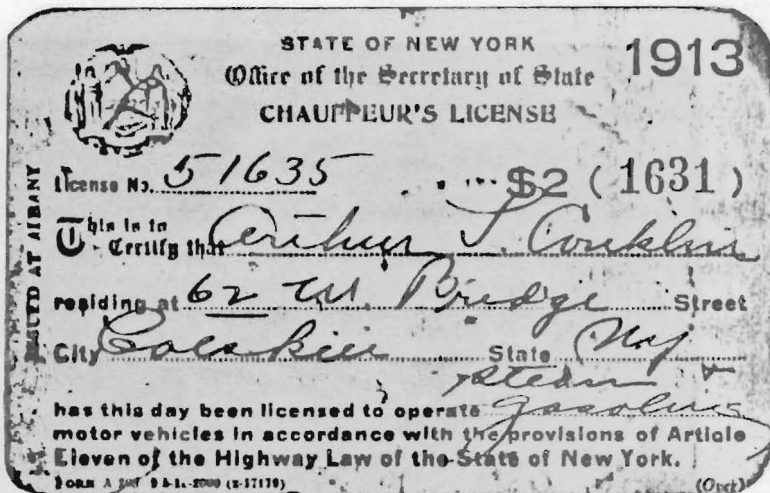 STATE OF NEW YORK 1913
Office of the Secretary of State
CHAUFFEUR'S LICENSE
ISSUED AT ALBANY
License No. 51635 $2 (1631)
This is to Certify that Arthur Conklin
residing at 62 W. Bridge Street
City State NY
steam
has this day been licensed to operate gasoline
motor vehicles in accordance with the provisions of Article
Eleven of the Highway Law of the State of New York.
(Over)